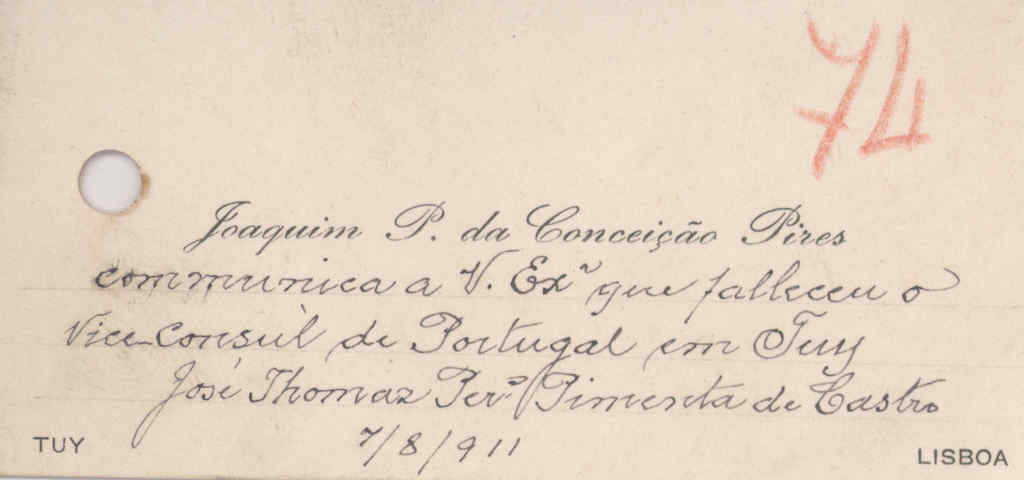 74
Joaquim P. da Conceição Pires
communica a V. Exª que falleceu o
Vice-Consul de Portugal em Tuy
José Thomaz Perª Pimenta de Castro
7/8/911
TUY
LISBOA